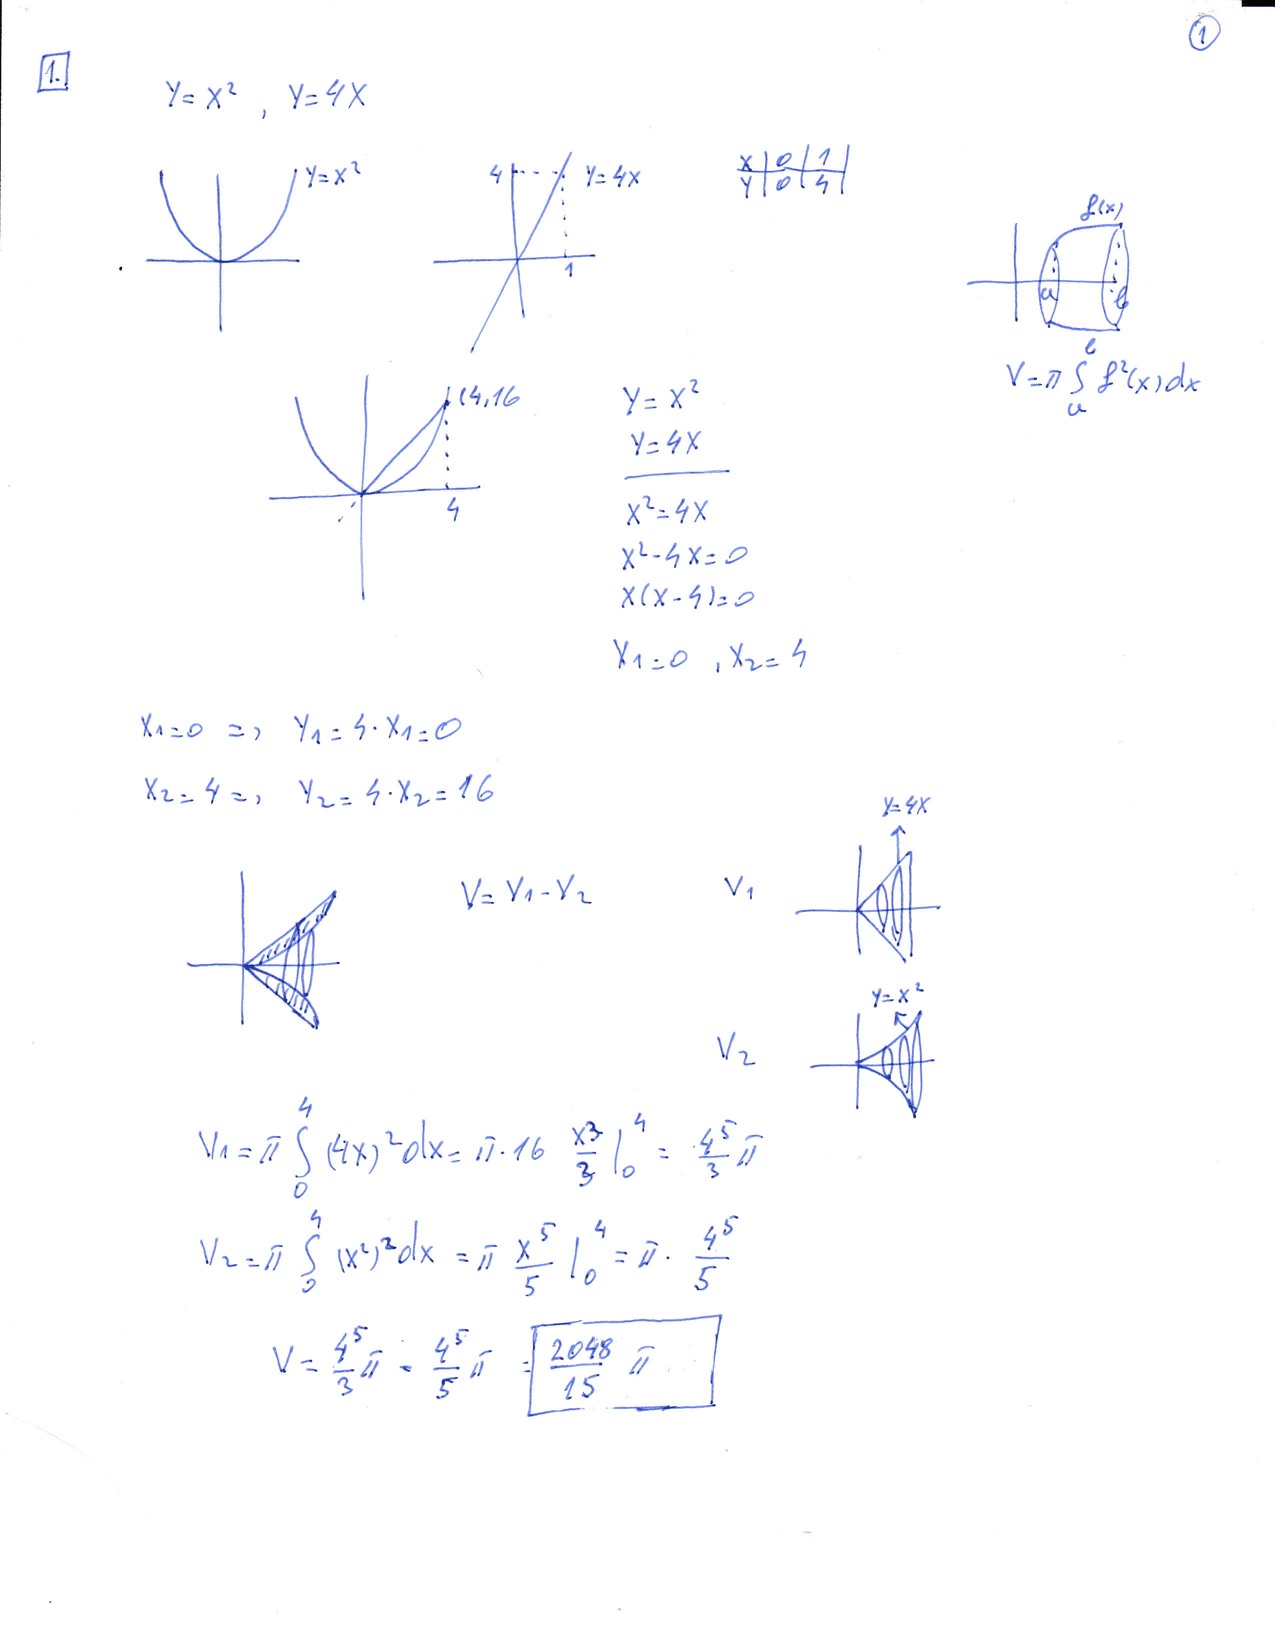 1
1.
Y = X² , Y = 4X
Y = X²
4 Y = 4X
1
X | 0 | 1
Y | 0 | 4
f(x)
a b
V = π ∫ₐᵇ f²(x) dx
(4,16
4
Y = X²
Y = 4X
X² = 4X
X² - 4X = 0
X(X - 4) = 0
X₁ = 0 , X₂ = 4
X₁ = 0 => Y₁ = 4·X₁ = 0
X₂ = 4 => Y₂ = 4·X₂ = 16
V = V₁ - V₂
V₁
Y = 4X
V₂
Y = X²
V₁ = π ∫₀⁴ (4X)² dx = π·16 X³/3 |₀⁴ = 4⁵/3 π
V₂ = π ∫₀⁴ (X²)² dx = π X⁵/5 |₀⁴ = π · 4⁵/5
V = 4⁵/3 π - 4⁵/5 π = 2048/15 π